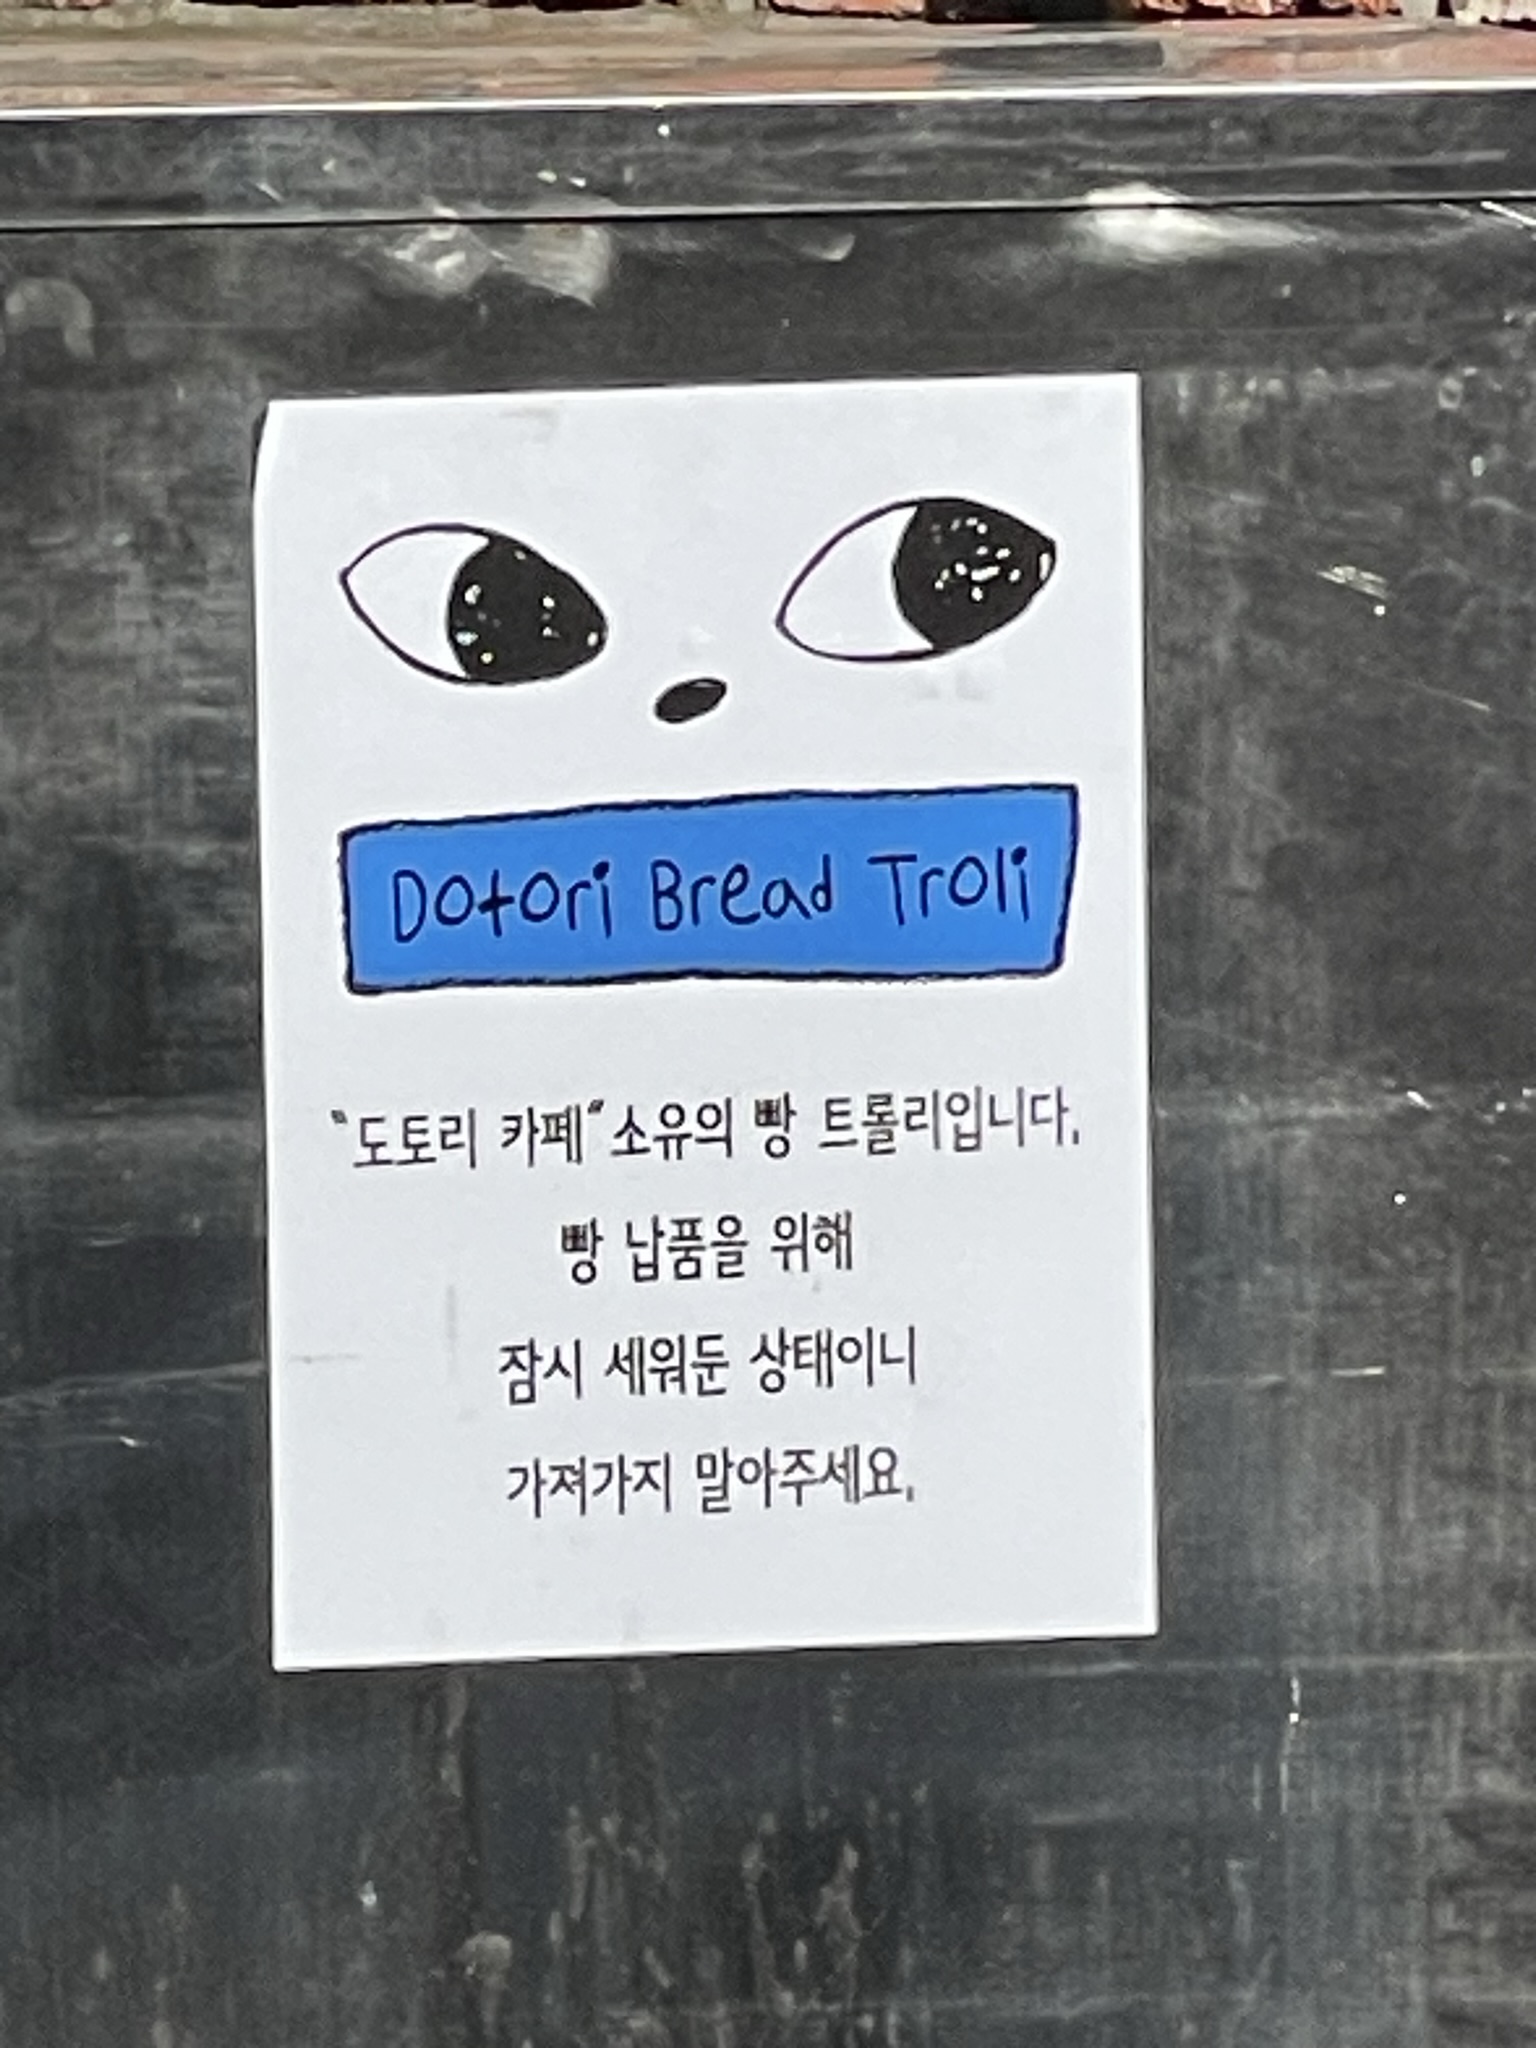 Dotori Bread Troli
"도토리 카페" 소유의 빵 트롤리입니다.
빵 납품을 위해
잠시 세워둔 상태이니
가져가지 말아주세요.